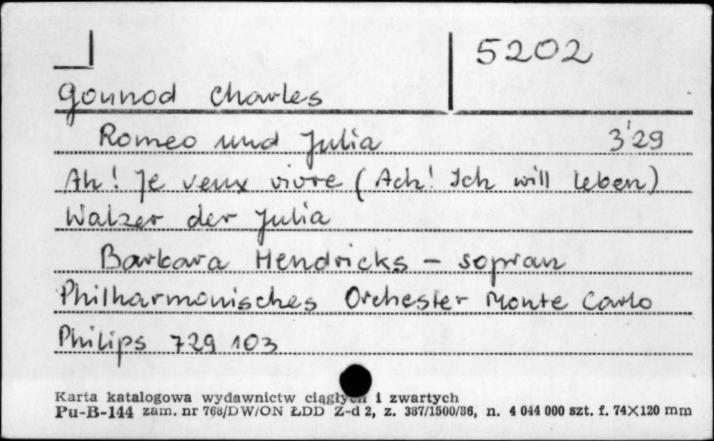 5202
Gounod Charles
Romeo und Julia 3'29
Ah! Je veux vivre (Ach! Ich will leben)
Walzer der Julia
Barbara Hendricks – sopran
Philharmonisches Orchester Monte Carlo
Philips 729 103
Karta katalogowa wydawnictw ciągłych i zwartych
Pu-B-144 zam. nr 768/DW/ON ŁDD Z-d 2, z. 387/1500/86, n. 4 044 000 szt. f. 74×120 mm